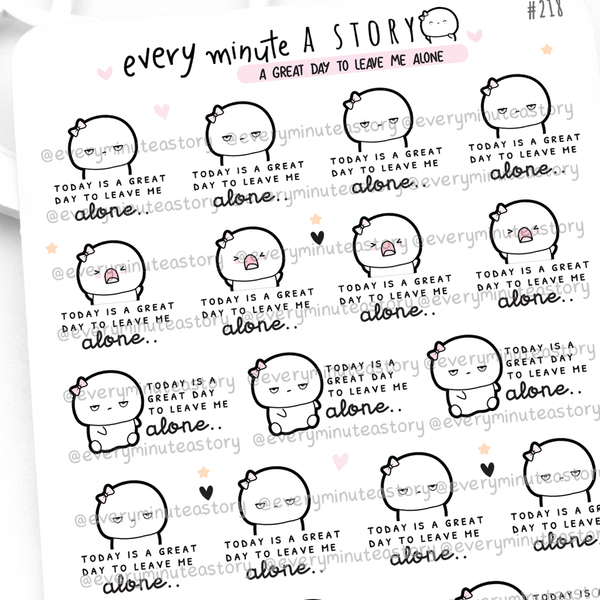 every minute A STORY
#218
A GREAT DAY TO LEAVE ME ALONE
@everyminuteastory @everyminuteastory
TODAY IS A GREAT
DAY TO LEAVE ME
alone..
TODAY IS A GREAT
DAY TO LEAVE ME
alone..
TODAY IS A GREAT
DAY TO LEAVE ME
alone..
TODAY IS A GREAT
DAY TO LEAVE ME
alone..
@everyminuteastory @everyminuteastory
@everyminuteastory @everyminuteastory
TODAY IS A GREAT
DAY TO LEAVE ME
alone..
TODAY IS A GREAT
DAY TO LEAVE ME
alone..
TODAY IS A GREAT
DAY TO LEAVE ME
alone..
TODAY IS A GREAT
DAY TO LEAVE ME
alone..
@everyminuteastory @everyminuteastory
@everyminuteastory @everyminuteastory
TODAY IS A
GREAT DAY
TO LEAVE ME
alone..
TODAY IS A
GREAT DAY
TO LEAVE ME
alone..
TODAY IS A
GREAT DAY
TO LEAVE ME
alone..
@everyminuteastory @everyminuteastory
@everyminuteastory @everyminuteastory
TODAY IS A GREAT
DAY TO LEAVE ME
alone..
TODAY IS A GREAT
DAY TO LEAVE ME
alone..
TODAY IS A GREAT
DAY TO LEAVE ME
alone..
TODAY IS A GREAT
DAY TO LEAVE
alone..
@everyminuteastory @everyminuteastory
TODAY IS A